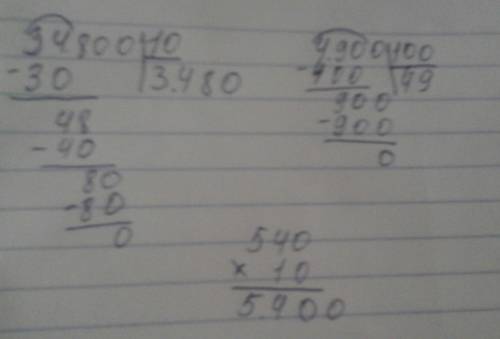 34800 10
-30 3.480
48
-40
80
-80
0
4.900 100
-400 49
900
-900
0
540
x 10
5.400